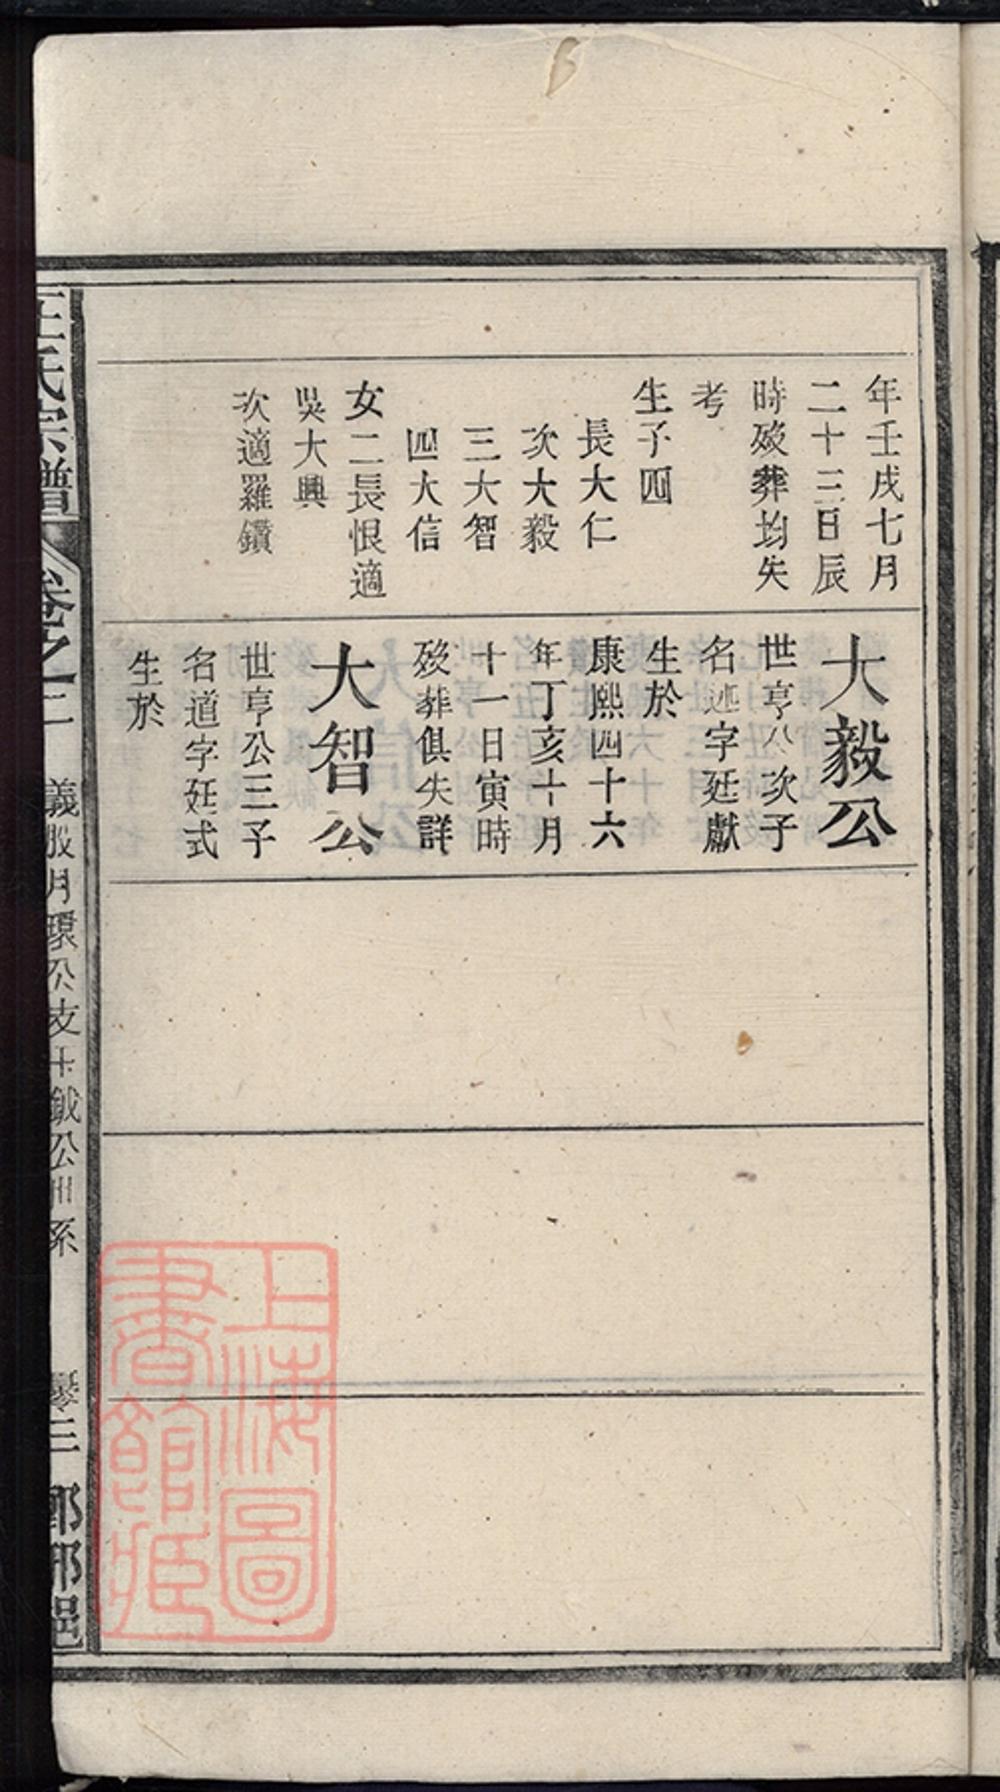 年壬戌七月
二十三日辰
時歿葬均失
考
生子四
長大仁
次大毅
三大智
四大信
女二長恨適
吳大興
次適羅鑽
大毅公
世亨公次子
名述字廷獻
生於
康熙四十六
年丁亥十月
十一日寅時
歿葬俱失詳
大智公
世亨公三子
名道字廷式
生於
王氏宗譜
卷之二
義股月環公支
鉞公
系
三
上海圖
書館藏